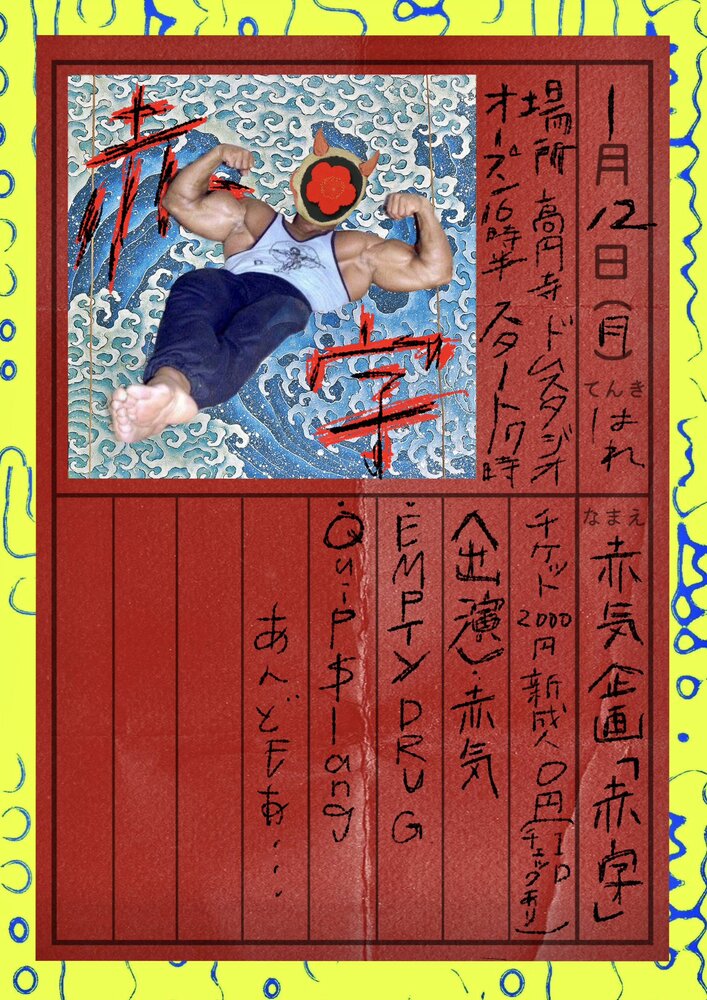 1月12日(月)
てんき
はれ
場所 高円寺 ドムスタジオ
オープン16時半 スタート17時
赤字
なまえ
赤気企画「赤字」
チケット2000円 新成人0円(IDチェックあり)
〈出演〉・赤気
・EMPTY DRUG
・Qu-iP$lang
あんどもあ・・・